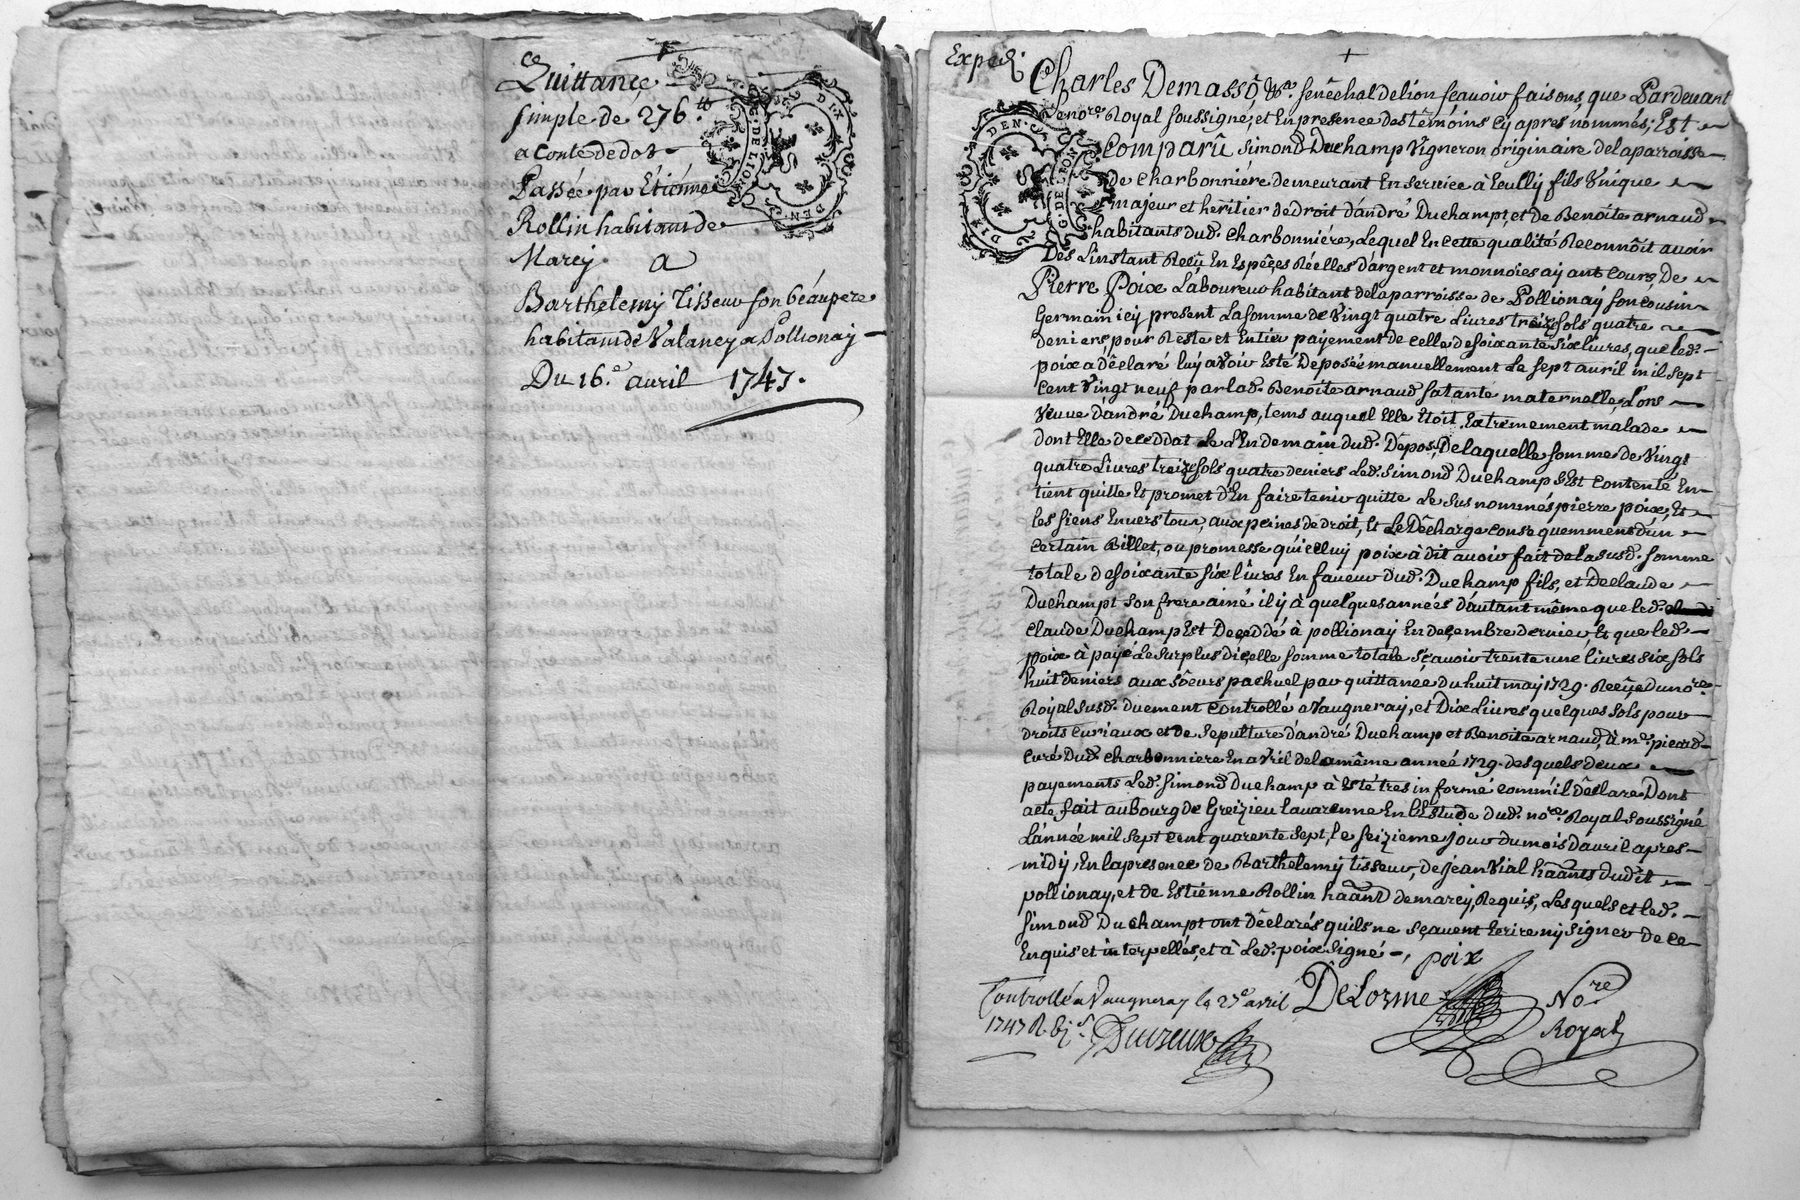 Quittance
simple de 276 ₶
a conte de dot
Passée par Etienne
Rollin habitant de
Marcy. a
Barthelemy Tisseur son beaupere
habitant de Valancy a Pollionay
Du 16.e avril 1747.
DIX DEN. G. DE LION
Exped.
Charles Demasso &a. senechal de lion scavoir faisons, que Pardevant
le no.re Royal soussigné, et En presence des témoins cy apres nommés; Est
Comparû simond Duchamp vigneron originaire de la parroisse
de Charbonniére demeurant En service à Eculli fils Vnique
majeur et héritier de droit d'andré Duchampt, et de Benoite arnaud
habitants dud. Charbonniére, Lequel En cette qualité Reconnôit avoir
Dès L'instant Reçû En Espêces Réelles d'argent et monnoies ay ant cours, De
Pierre Poix Laboureur habitant de la parroisse de Pollionay son cousin
Germain icy present La somme de Vingt quatre Livres treize sols quatre
deniers, pour Reste et Entier payement de celle de soixante six livres, que led.
poix a déclaré luy avoir Esté Deposée manuellement Le sept avril mil sept
cent Vingt neuf par lad. Benoite arnaud sa tante maternelle, Lors
Veuve d'andré Duchamp, tems auquel Elle Etoit Extrêmement malade
dont Elle deceddat Le L'Endemain dud. Dépos, De laquelle somme de Vingt
quatre Livres treize sols quatre deniers Led. simond Duchamp s'Est Contenté En
tient quitte Et promet d'En faire tenir quitte Le sus nommé pierre poix, Et
les siens Envers tous, aux peines de droit, Et Le Décharge consequemment d'un
certain Billet, ou promesse qu'icelluy poix à dit avoir fait de la susd. somme
totale de soixante six livres En faveur dud. Duchamp fils, et De claude
Duchampt son frere ainé il y à quelques années d'autant même que led.
claude Duchamp Est Deceddé à pollionay En decembre dernier, Et que led.
poix à payé Le surplus d'icelle somme totale sçavoir trente une livres six sols
huit deniers aux Sœurs pachuel par quittance du huit may 1729. Reçûe du no.re
Royal susd. duement Controllé a Vaugneray, et Dix Livres quelques sols pour
droits curiaux et de sepulture d'andré Duchamp et Benoite arnaud, à m.e picard
curé Dud. Charbonniere En avril de la même année 1729. des quels deux
payements Led. Simond Duchamp à Esté tres informé comm'il déclare Dont
acte fait au bourg de Greizieu lavarenne En L'Estude dud. no.re Royal soussigné
L'année mil sept cent quarente sept, le seizieme jour du mois d'avril apres
midy, En la presence de Barthelemy tisseur, de jean Vial haants dudit
pollionay, et de Estienne Rollin haant de marcy, Requis, Les quels et led.
simond Duchampt ont déclarés quils ne sçavent Ecrire ny signer de ce
Enquis et interpellés, et à Led. poix signé
poix
Controllé a Vaugneray le 27e avril
DeLorme
No.re
Royal
1747 R.
DIX DEN. G. DE LION